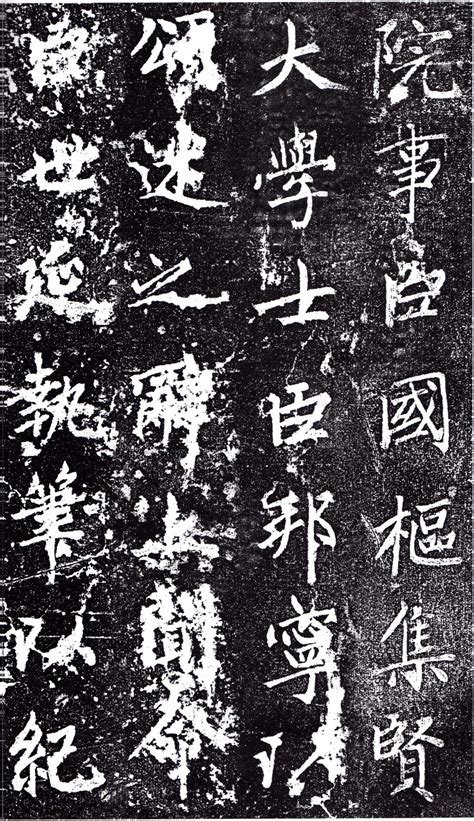 院事臣國樞集賢
大學士臣邦寧以
頌述之辭上聞命
臣世延執筆以紀